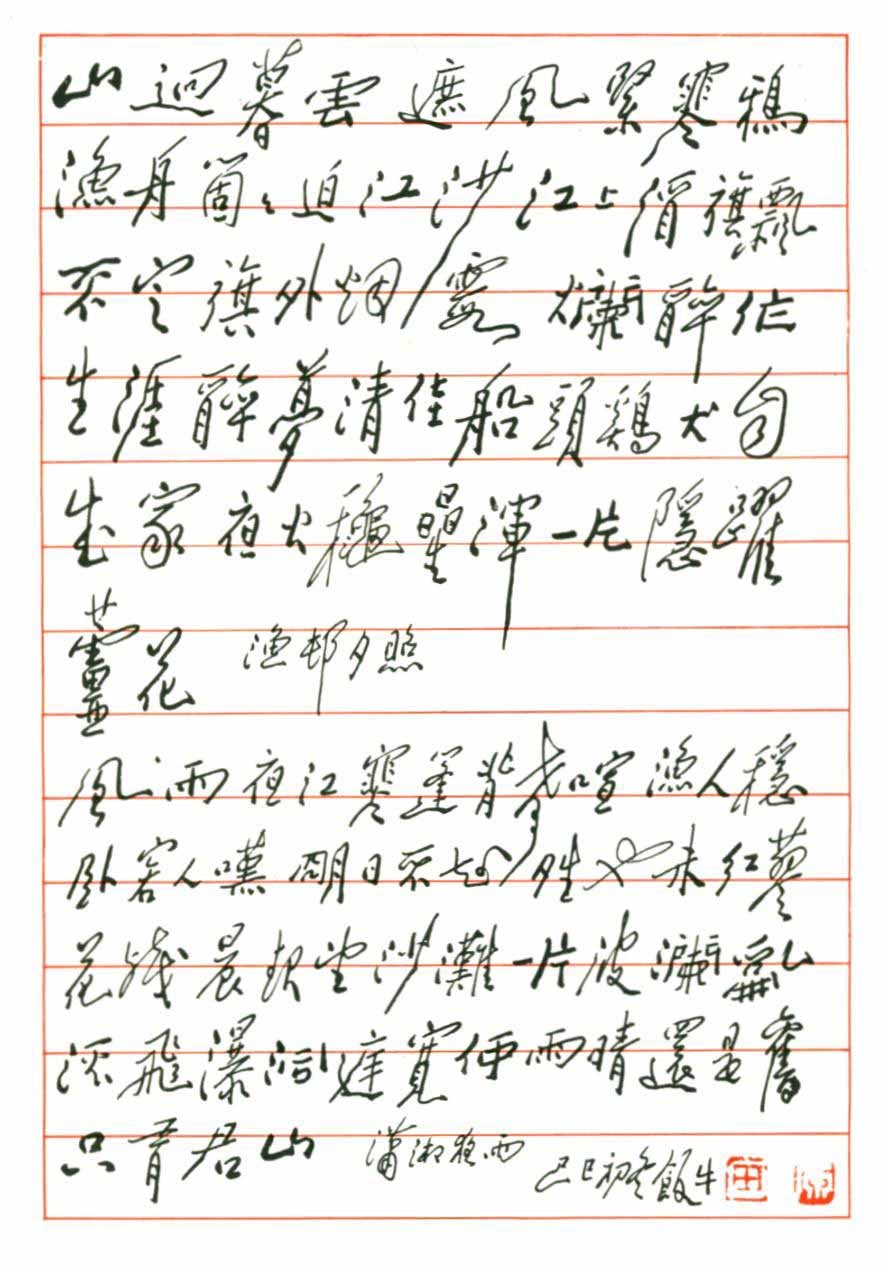 山迥暮雲遮風緊寒鴉
漁舟箇〻泊江沙江上酒旗飄
不定旗外烟霞爛醉作
生涯醉夢清佳船頭鷄犬自
成家夜火穐星渾一片隱躍
蘆花 漁邨夕照
風雨夜江寒篷背聲喧漁人穩
臥客人嘆明日不知晴也未紅蓼
花殘晨起望沙灘一片波瀾亂
流飛瀑洞庭寬何雨晴還是舊
只有君山 瀟湘夜雨 己巳初冬飯牛